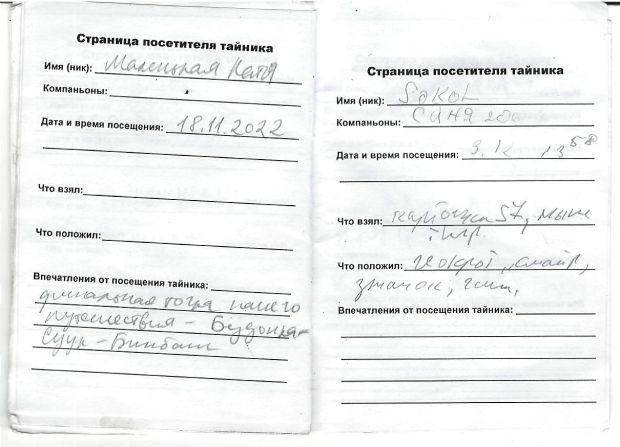 Страница посетителя тайника
Имя (ник): Маленькая Катя
Компаньоны:
Дата и время посещения: 18.11.2022
Что взял:
Что положил:
Впечатления от посещения тайника:
финальная точка нашего
путешествия - Буздонка-
Суук - Бинбаш
Страница посетителя тайника
Имя (ник): SOKOL
Компаньоны: СИНЯ
Дата и время посещения: 13 58
Что взял: карточка 57, мышь
тигр.
Что положил: смайл,
значок,
Впечатления от посещения тайника: